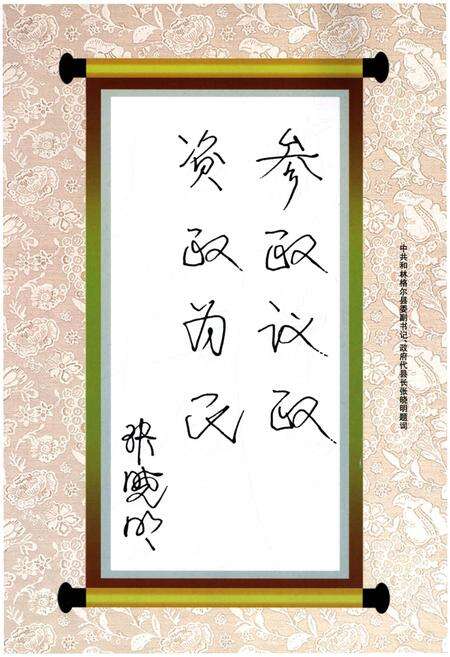 参政议政
资政为民
张晓明
中共和林格尔县委副书记、政府代县长张晓明题词